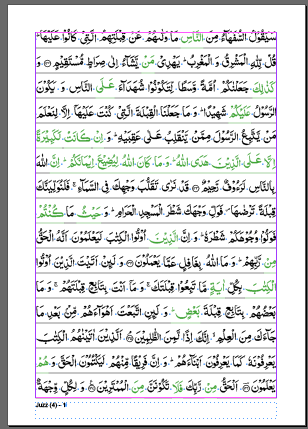 سَيَقُولُ السُّفَهَآءُ مِنَ النَّاسِ مَا وَلّٰىهُمْ عَنْ قِبْلَتِهِمُ الَّتِىْ كَانُوْا عَلَيْهَا ؕ
قُلْ لِّلّٰهِ الْمَشْرِقُ وَ الْمَغْرِبُ ؕ يَهْدِىْ مَنْ يَّشَآءُ اِلٰى صِرَاطٍ مُّسْتَقِيْمٍ ۝ وَ
كَذٰلِكَ جَعَلْنٰكُمْ اُمَّةً وَّسَطًا لِّتَكُوْنُوْا شُهَدَآءَ عَلَى النَّاسِ وَ يَكُوْنَ
الرَّسُوْلُ عَلَيْكُمْ شَهِيْدًا ؕ وَ مَا جَعَلْنَا الْقِبْلَةَ الَّتِىْ كُنْتَ عَلَيْهَاۤ اِلَّا لِنَعْلَمَ
مَنْ يَّتَّبِعُ الرَّسُوْلَ مِمَّنْ يَّنْقَلِبُ عَلٰى عَقِبَيْهِ ؕ وَ اِنْ كَانَتْ لَكَبِيْرَةً
اِلَّا عَلَى الَّذِيْنَ هَدَى اللّٰهُ ؕ وَ مَا كَانَ اللّٰهُ لِيُضِيْعَ اِيْمَانَكُمْ ؕ اِنَّ اللّٰهَ
بِالنَّاسِ لَرَءُوْفٌ رَّحِيْمٌ ۝ قَدْ نَرٰى تَقَلُّبَ وَجْهِكَ فِى السَّمَآءِ ۚ فَلَنُوَلِّيَنَّكَ
قِبْلَةً تَرْضٰىهَا ۪ فَوَلِّ وَجْهَكَ شَطْرَ الْمَسْجِدِ الْحَرَامِ ؕ وَ حَيْثُ مَا كُنْتُمْ
فَوَلُّوْا وُجُوْهَكُمْ شَطْرَهٗ ؕ وَ اِنَّ الَّذِيْنَ اُوْتُوا الْكِتٰبَ لَيَعْلَمُوْنَ اَنَّهُ الْحَقُّ
مِنْ رَّبِّهِمْ ؕ وَ مَا اللّٰهُ بِغَافِلٍ عَمَّا يَعْمَلُوْنَ ۝ وَ لَئِنْ اَتَيْتَ الَّذِيْنَ اُوْتُوا
الْكِتٰبَ بِكُلِّ اٰيَةٍ مَّا تَبِعُوْا قِبْلَتَكَ ۚ وَ مَاۤ اَنْتَ بِتَابِعٍ قِبْلَتَهُمْ ۚ وَ مَا
بَعْضُهُمْ بِتَابِعٍ قِبْلَةَ بَعْضٍ ؕ وَ لَئِنِ اتَّبَعْتَ اَهْوَآءَهُمْ مِّنْۢ بَعْدِ مَا
جَآءَكَ مِنَ الْعِلْمِ ۙ اِنَّكَ اِذًا لَّمِنَ الظّٰلِمِيْنَ ۝ اَلَّذِيْنَ اٰتَيْنٰهُمُ الْكِتٰبَ
يَعْرِفُوْنَهٗ كَمَا يَعْرِفُوْنَ اَبْنَآءَهُمْ ؕ وَ اِنَّ فَرِيْقًا مِّنْهُمْ لَيَكْتُمُوْنَ الْحَقَّ وَ هُمْ
يَعْلَمُوْنَ ۝ اَلْحَقُّ مِنْ رَّبِّكَ فَلَا تَكُوْنَنَّ مِنَ الْمُمْتَرِيْنَ ۝ وَ لِكُلٍّ وِّجْهَةٌ